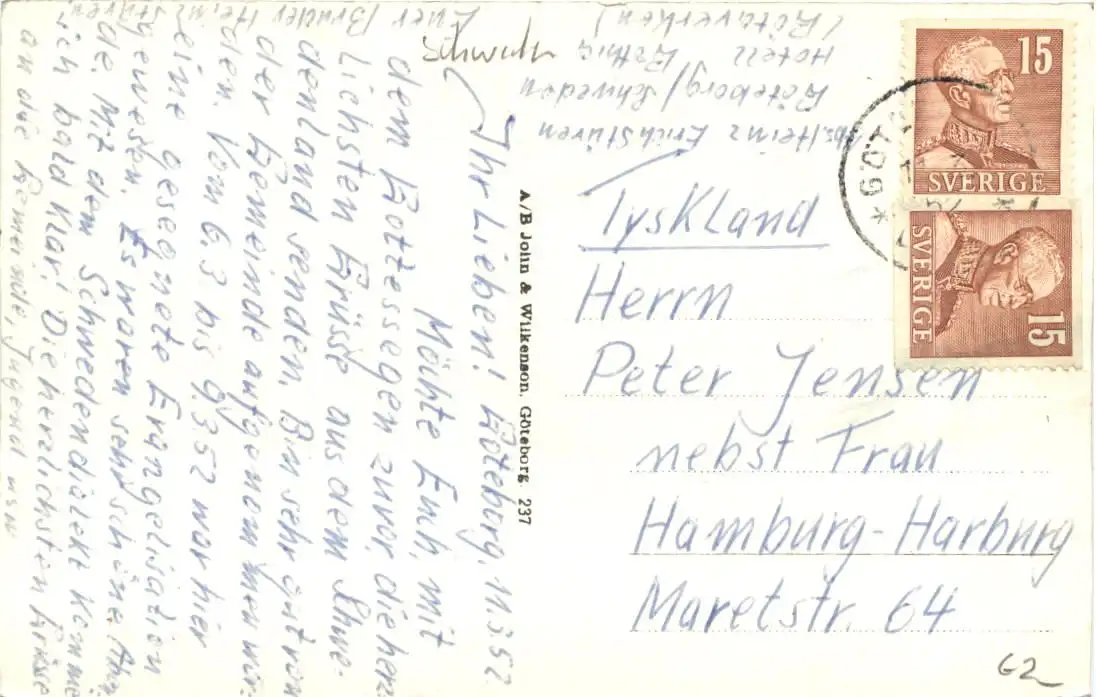 Ihr Lieben! Göteborg, 11.3.52
Möchte Euch, mit
dem Gottessegen zuvor, die herz-
lichsten Grüsse aus dem Schwe-
denland senden. Bin sehr gut von
der Gemeinde aufgenommen wor-
den. Vom 6.3 bis 9.3 52 war hier
eine gesegnete Evangelisation
gewesen. Es waren sehr schöne
de. Mit dem Schwedendialekt komme
ich bald klar! Die herzlichsten Grüsse
an die Gemeinde, Jugend usw
Euer Bruder Heinz
Schweden
A/B John & Wilkenson, Göteborg. 237
Heinz Erichstüren
Göteborg / Schweden
Hotell Bothnia
(Götaverken)
Tyskland
Herrn
Peter Jensen
nebst Frau
Hamburg-Harburg
Maretstr. 64
15
SVERIGE
SVERIGE
15
GÖT
52
62